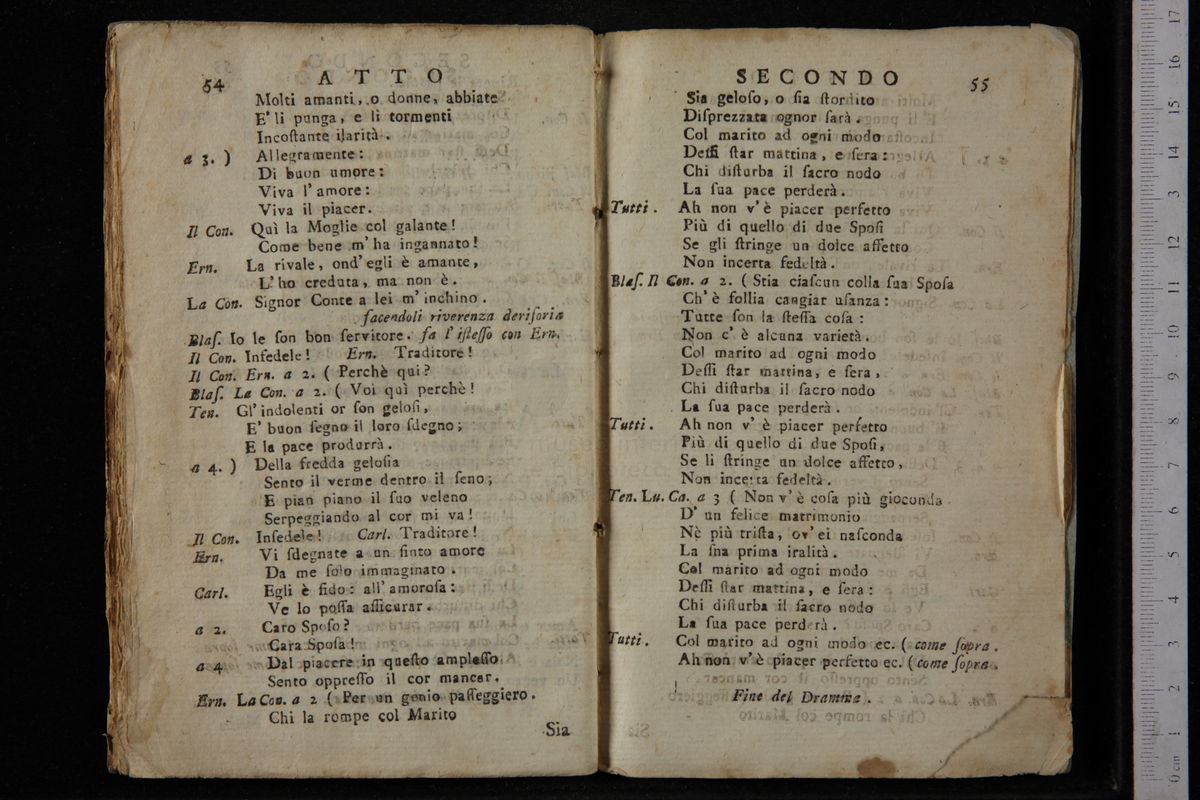 54 ATTO
Molti amanti, o donne, abbiate
E' li punga, e li tormenti
Incoſtante ilarità.
a 3. ) Allegramente:
Di buon umore:
Viva l'amore:
Viva il piacer.
Il Con. Quì la Moglie col galante!
Come bene m'ha ingannato!
Ern. La rivale, ond'egli è amante,
L'ho creduta, ma non è.
La Con. Signor Conte a lei m'inchino.
facendoli riverenza deriſoria
Blaſ. Io le ſon bon ſervitore. fa l'iſteſſo con Ern.
Il Con. Infedele! Ern. Traditore!
Il Con. Ern. a 2. ( Perchè qui?
Blaſ. La Con. a 2. ( Voi quì perchè!
Ten. Gl'indolenti or ſon geloſi,
E' buon ſegno il loro ſdegno;
E la pace produrrà.
a 4. ) Della fredda geloſia
Sento il verme dentro il ſeno;
E pian piano il ſuo veleno
Serpeggiando al cor mi va!
Il Con. Infedele! Carl. Traditore!
Ern. Vi ſdegnate a un finto amore
Da me ſolo immaginato.
Carl. Egli è fido: all'amoroſa:
Ve lo poſſa aſſicurar.
a 2. Caro Spoſo?
Cara Spoſa!
a 4 Dal piacere in queſto ampleſſo
Sento oppreſſo il cor mancar.
Ern. La Con. a 2 ( Per un genio paſſeggiero.
Chi la rompe col Marito
Sia
SECONDO 55
Sia geloſo, o ſia ſtordito
Diſprezzata ognor ſarà.
Col marito ad ogni modo
Deſſi ſtar mattina, e ſera:
Chi diſturba il ſacro nodo
La ſua pace perderà.
Tutti. Ah non v'è piacer perfetto
Più di quello di due Spoſi
Se gli ſtringe un dolce affetto
Non incerta fedeltà.
Blaſ. Il Con. a 2. ( Stia ciaſcun colla ſua Spoſa
Ch'è follia cangiar uſanza:
Tutte ſon la ſteſſa coſa:
Non c'è alcuna varietà.
Col marito ad ogni modo
Deſſi ſtar mattina, e ſera,
Chi diſturba il ſacro nodo
La ſua pace perderà.
Tutti. Ah non v'è piacer perfetto
Più di quello di due Spoſi,
Se li ſtringe un dolce affetto,
Non incerta fedeltà.
Ten. Lu. Ca. a 3 ( Non v'è coſa più gioconda
D'un felice matrimonio
Nè più triſta, ov'ei naſconda
La ſna prima iralità.
Col marito ad ogni modo
Deſſi ſtar mattina, e ſera:
Chi diſturba il ſacro nodo
La ſua pace perderà.
Tutti. Col marito ad ogni modo ec. ( come ſopra.
Ah non v'è piacer perfetto ec. ( come ſopra.
Fine del Dramma.
0 cm 1 2 3 4 5 6 7 8 9 10 11 12 13 14 15 16 17